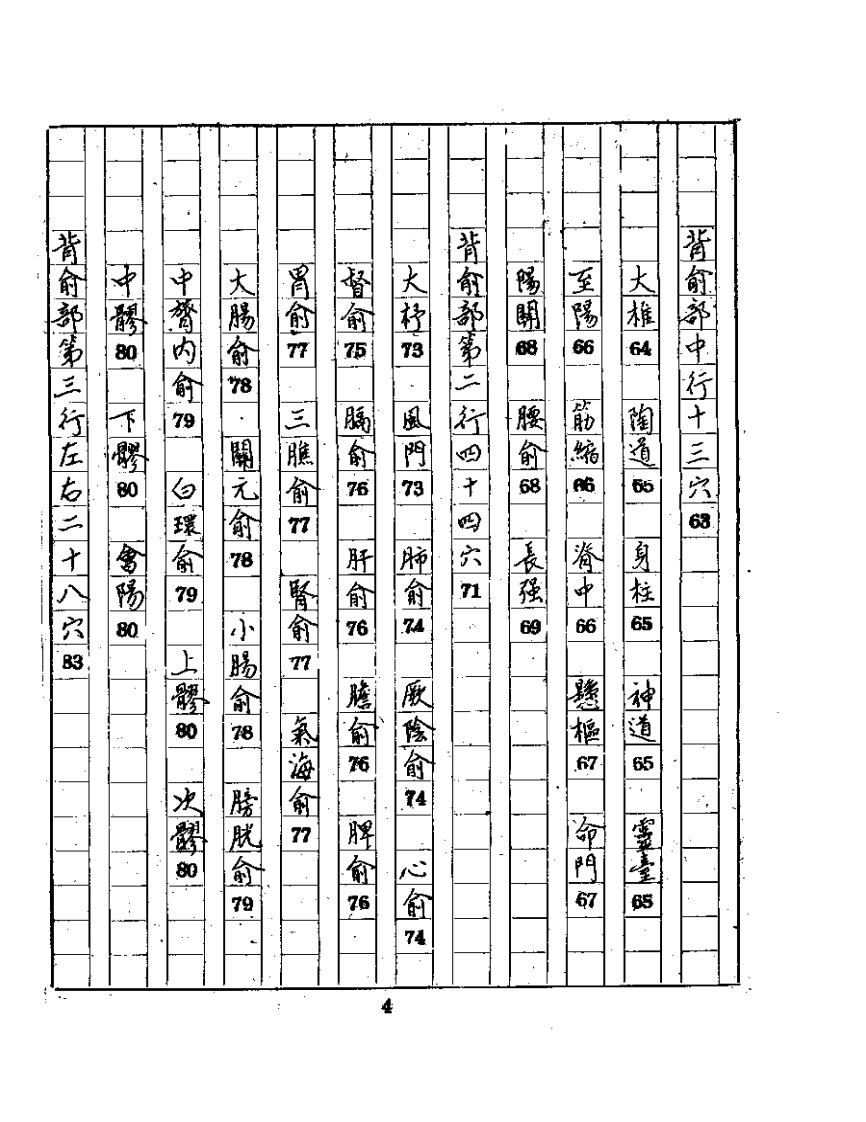 背俞部中行十三穴63
大椎64 陶道65 身柱65 神道65 靈臺65
至陽66 筋縮66 脊中66 懸樞67 命門67
陽關68 腰俞68 長强69
背俞部第二行四十四穴71
大杼73 風門73 肺俞74 厥陰俞74 心俞74
督俞75 膈俞76 肝俞76 膽俞76 脾俞76
胃俞77 三瞧俞77 腎俞77 氣海俞77
大腸俞78 關元俞78 小腸俞78 膀胱俞79
中膂内俞79 白環俞79 上髎80 次髎80
中髎80 下髎80 會陽80
背俞部第三行左右二十八穴83
4